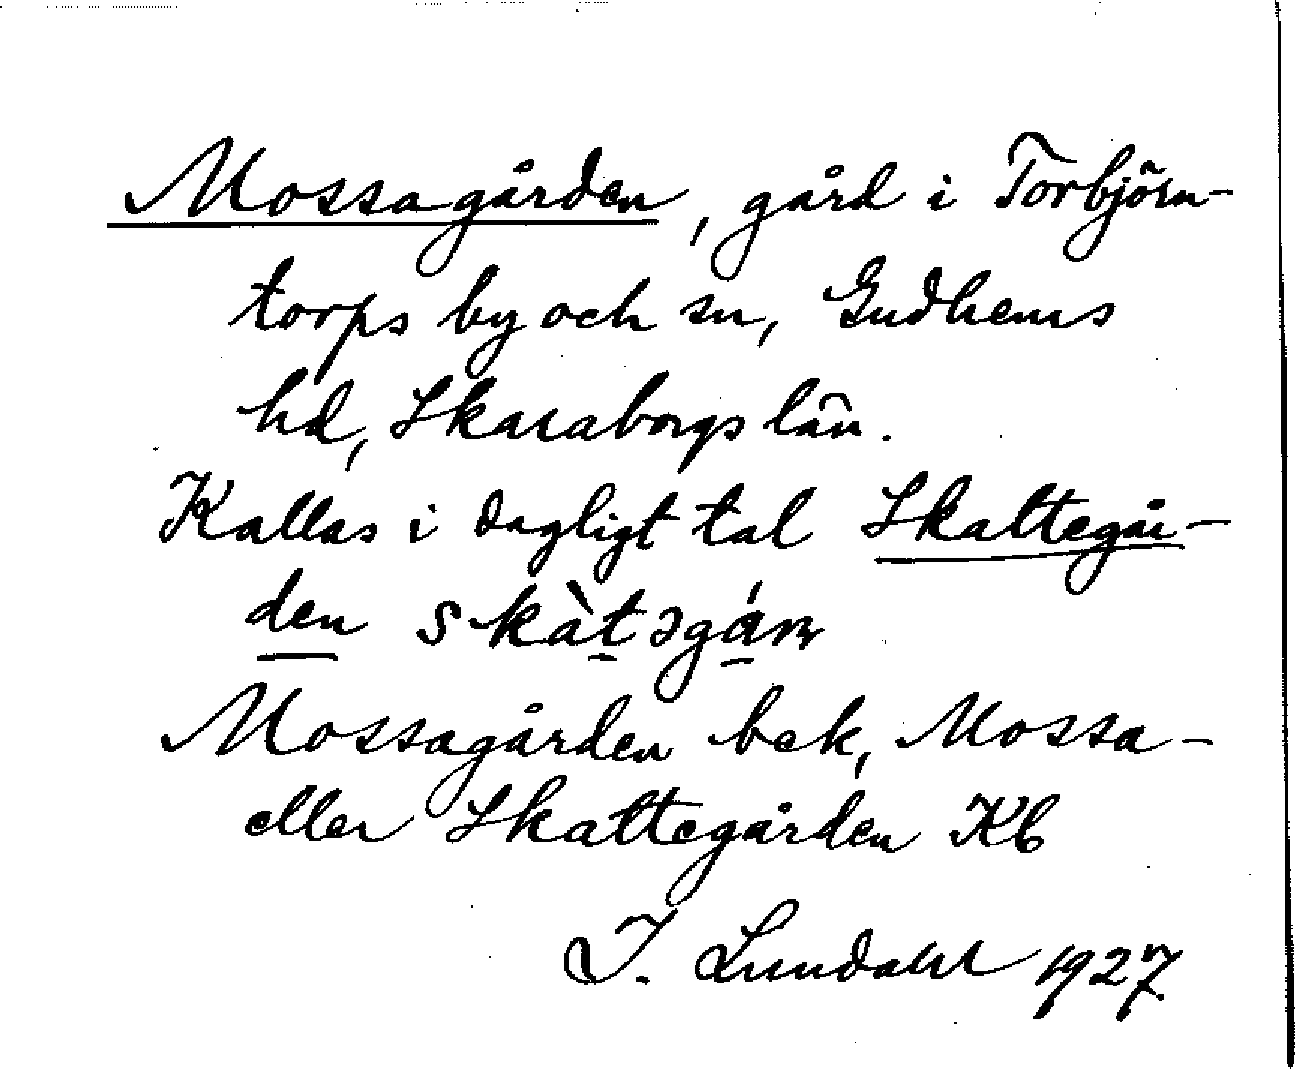 Mossagården, gård i Torbjörn-
torps by och sn, Gudhems
hd, Skaraborgs län.
Kallas i dagligt tal Skattegår-
den skàtəgán
Mossagården bek, Mossa-
eller Skattegården Kb
I. Lundahl 1927.